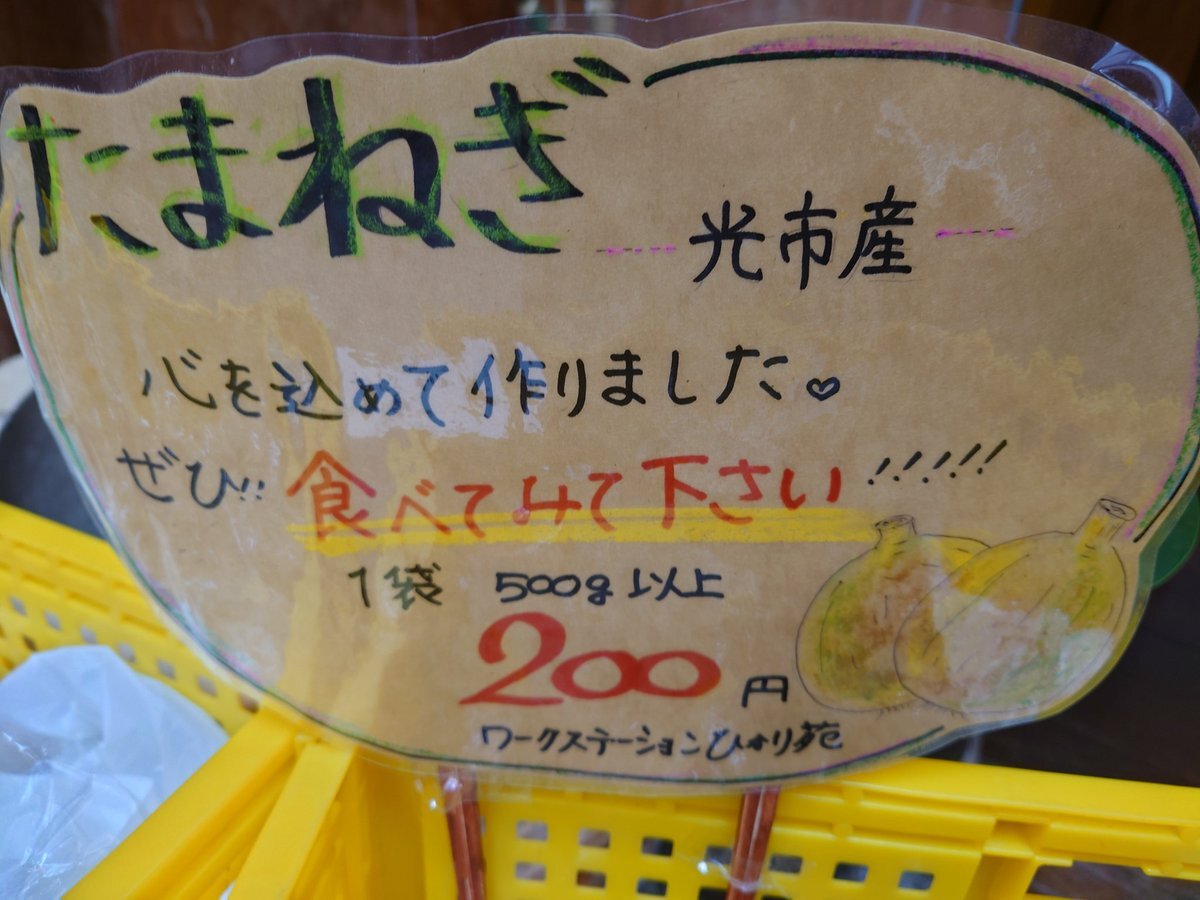 たまねぎ
光市産
心を込めて作りました♡
ぜひ!! 食べてみて下さい!!!!!
1袋 500g以上
200円
ワークステーションひかり苑